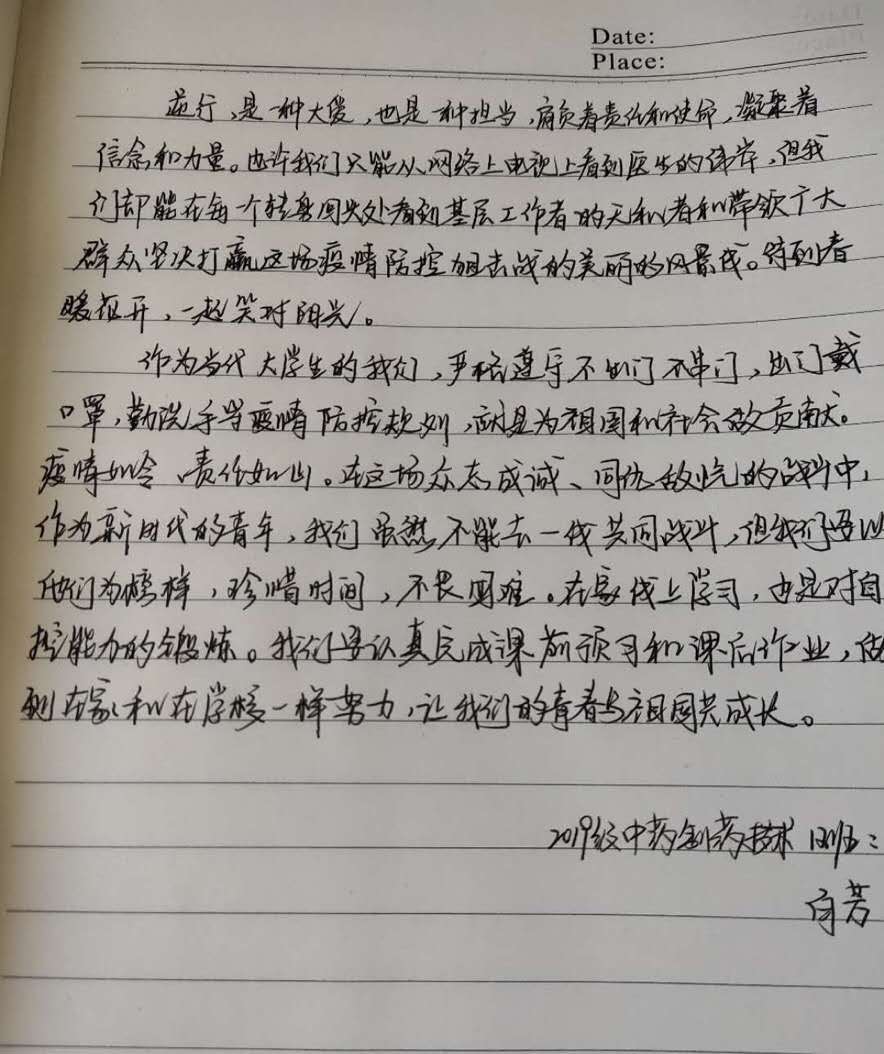 Date:
Place:
逆行,是一种大爱,也是一种担当,肩负着责任和使命,凝聚着
信念和力量。也许我们只能从网络上电视上看到医生的伟岸,但我
们却能在每一个转身回头处看到基层工作者的无私者和带领广大
群众坚决打赢这场疫情防控狙击战的美丽的风景线。待到春
暖花开,一起笑对阳光。
作为当代大学生的我们,严格遵守不出门不串门,出门戴
口罩,勤洗手等疫情防控规则,就是为祖国和社会做贡献。
疫情如令,责任如山。在这场众志成诚、同仇敌忾的战斗中,
作为新时代的青年,我们虽然不能去一线共同战斗,但我们要以
他们为榜样,珍惜时间,不畏困难。在家线上学习,也是对自
控能力的锻炼。我们要认真完成课前预习和课后作业,做
到在家和在学校一样努力,让我们的青春与祖国共成长。
2019级中药制药技术1班:
向芳